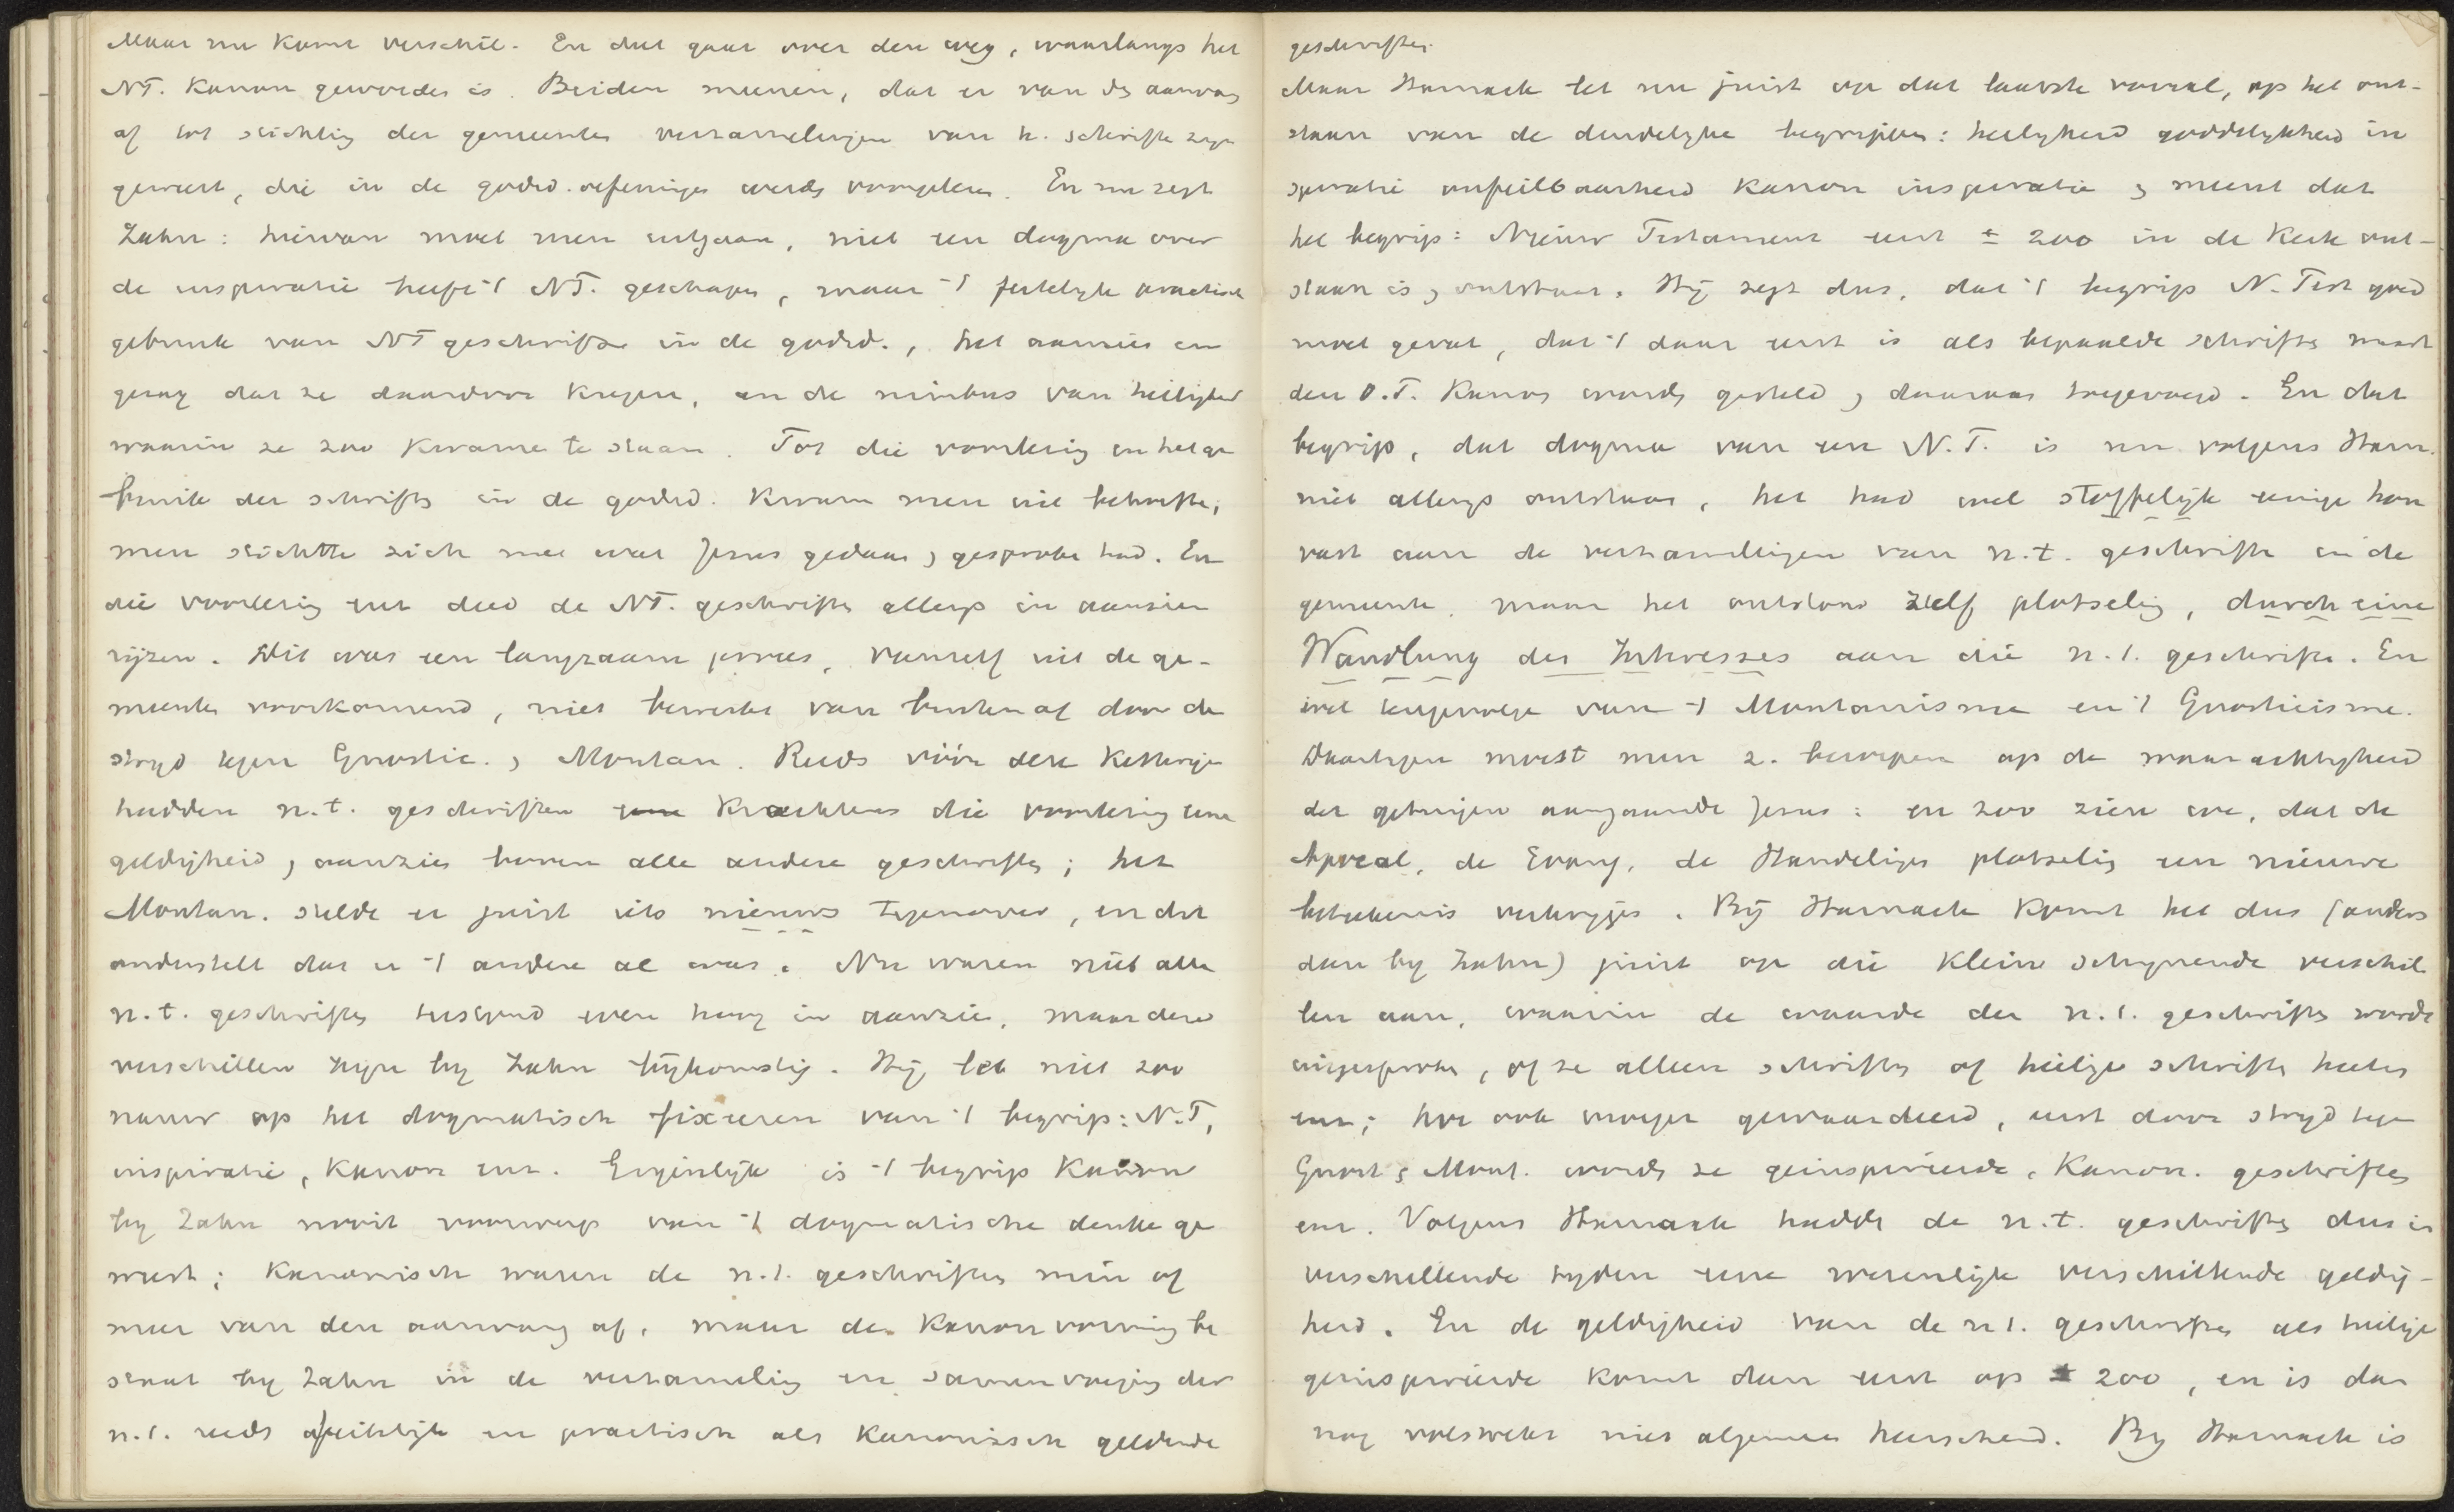 Maar nu komt verschil. En dat gaat over den weg, waarlangs het
NT. Kanon geworden is. Beiden meenen, dat er van den aanvang
af tot stichting der gemeenten verzamelingen van h. schriften zijn
geweest, die in de godsd. oefeningen werden voorgelezen. En nu zegt
Zahn: hiervan moet men uitgaan, niet een dogma over
de inspiratie heeft 't NT. geschapen, maar 't feitelijk practisch
gebruik van NT geschriften in de godsd., het aanzien en
gezag dat ze daardoor kregen, en de nimbus van heiligheid
waarin ze zoo kwamen te staan. Tot die voorlezing en het ge
bruik der schriften in de godsd. kwam men uit behoefte;
men stichtte zich met wat Jezus gedaan en gesproken had. En
die voorlezing enz deed de NT. geschriften allengs in aanzien
rijzen. Dit was een langzaam proces, vanzelf uit de ge-
meenten voortkomend, niet bewerkt van buiten af door de
strijd tegen Gnostic. en Montan. Reeds vóór deze Ketterijen
hadden n.t. geschriften krachtens die voorlezing eene
geldigheid en aanzien boven alle andere geschriften; het
Montan. stelde er juist iets nieuws tegenover, en dit
onderstelt dat er 't andere al was. Nu waren niet alle
n.t. geschriften tusschen even hoog in aanzien, maar deze
verschillen zijn bij Zahn bijkomstig. Hij let niet zoo
nauw op het dogmatisch fixeren van 't begrip: N.T,
inspiratie, Kanon enz. Eigenlijk is 't begrip Kanon
bij Zahn nooit voorwerp van 't dogmatische denken ge
weest; Kanonisch waren de n.t. geschriften min of
meer van den aanvang af. maar de Kanonvorming be
staat bij Zahn in de verzameling en samenvoeging der
n.t. reeds feitelijk en practisch als Kanonisch geldende
geschriften.
Maar Harnack let nu juist op dat laatste vooral, op het ont-
staan van de duidelijke begrippen: heiligheid goddelijkheid in
spiratie onfeilbaarheid Kanon inspiratie en meent dat
het begrip: Nieuw Testament eerst ± 200 in de Kerk ont-
staan is en ontstaan. Hij zegt dus, dat 't begrip N. Test goed
moet gevat, dat 't daar eerst is als bepaalde schriften naast
den O.T. Kanon worden gesteld en daaraan toegevoegd. En dat
begrip, dat dogma van een N.T. is nu volgens Harn.
niet allengs ontstaan, het had wel stoffelijk eenige hou
vast aan de verzamelingen van n.t. geschriften in de
gemeente, maar het ontstond zelf plotseling, durch eine
Wandlung des Interesses aan die n.t. geschriften. En
wel tengevolge van 't Montanisme en 't Gnosticisme.
Daartegen moest men z. beroepen op de waarachtigheid
der getuigen aangaande Jezus: en zoo zien we, dat de
Apocal. de Evang. de Handelingen plotseling een nieuwe
beteekenis verkrijgen. Bij Harnack komt het dus (anders
dan bij Zahn) juist op die klein schijnende verschil
len aan, waarin de waarde der n.t. geschriften wordt
uitgesproken, of ze alleen schriften of heilige schriften heeten
enz; hoe ook vroeger gewaardeerd, eerst door strijd tegen
Gnost en Mont. worden ze geinspireerde, Kanon. geschriften
enz. Volgens Harnack hadden de n.t. geschriften dus in
verschillende tijden eene wezenlijk verschillende geldig-
heid. En de geldigheid van de n.t. geschriften als heilige
geinspireerde komt dan eerst op ± 200, en is dan
nog volstrekt niet algemeen heerschend. Bij Harnack is